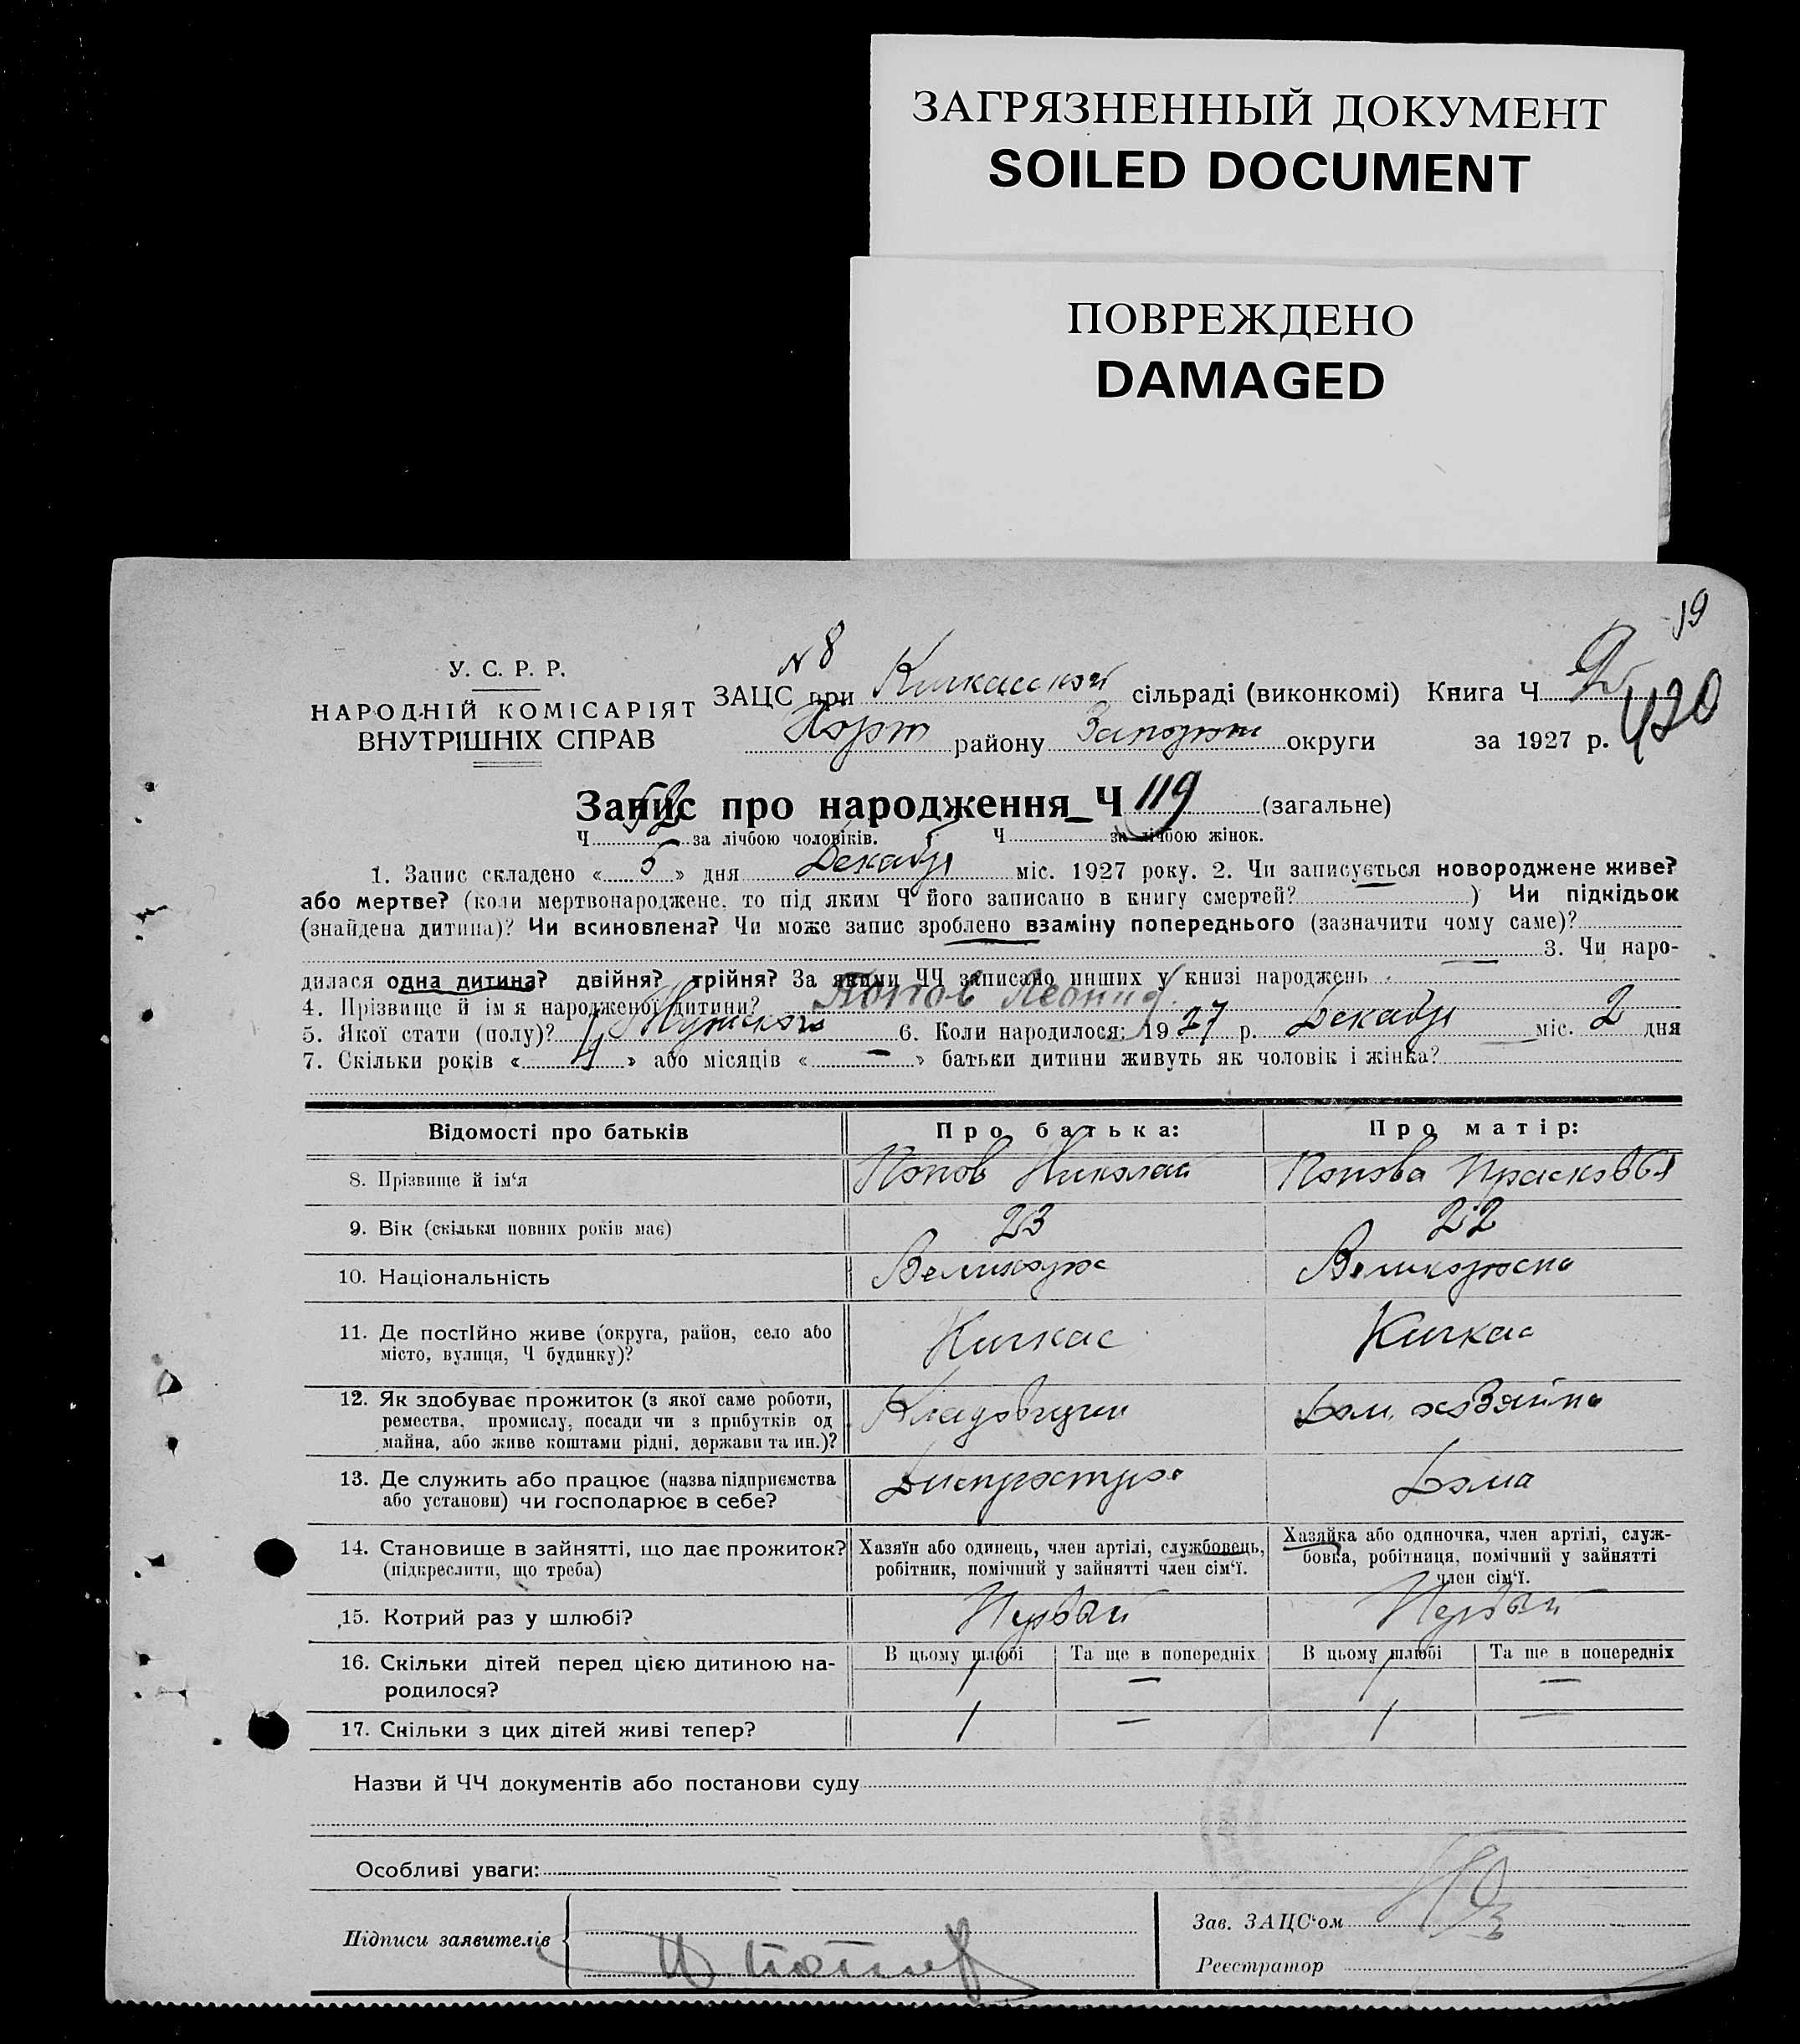 ЗАГРЯЗНЕННЫЙ ДОКУМЕНТ
SOILED DOCUMENT
ПОВРЕЖДЕНО
DAMAGED
19
420
У. С. Р. Р.
НАРОДНІЙ КОМІСАРІЯТ
ВНУТРІШНІХ СПРАВ
N 8
ЗАЦС при Кичкасской сільраді (виконкомі) Книга Ч
Хорт району Запорож округи за 1927 р.
Запис про народження Ч 119 (загальне)
Ч 52 за лічбою чоловіків. Ч за лічбою жінок.
1. Запис складено « 5 » дня Декабря міс. 1927 року. 2. Чи записується новороджене живе?
або мертве? (коли мертвонароджене, то під яким Ч його записано в книгу смертей? ) Чи підкідьок
(знайдена дитина)? Чи всиновлена? Чи може запис зроблено взаміну попереднього (зазначити чому саме)?
3. Чи наро-
дилася одна дитина? двійня? трійня? За якими ЧЧ записано инших у книзі народжень
4. Прізвище й ім я народженої дитини? Попов Леонид
5. Якої стати (полу)? Мужского 6. Коли народилося: 19 27 р. Декабря міс. 2 дня
7. Скільки років « 4 » або місяців « — » батьки дитини живуть як чоловік і жінка?
Відомості про батьків Про батька: Про матір:
8. Прізвище й ім‘я Попов Николай Попова Прасковья
9. Вік (скільки повних років має) 23 22
10. Національність Великорос Великороска
11. Де постійно живе (округа, район, село або
місто, вулиця, Ч будинку)? Кичкас Кичкас
12. Як здобуває прожиток (з якої саме роботи,
ремества, промислу, посади чи з прибутків од
майна, або живе коштами рідні, держави та ин.)? Кладовщик Дом. хозяйка
13. Де служить або працює (назва підприємства
або установи) чи господарює в себе? Днепрострой Дома
14. Становище в зайнятті, що дає прожиток?
(підкреслити, що треба)
Хазяїн або одинець, член артілі, службовець,
робітник, помічний у зайнятті член сім‘ї.
Хазяйка або одиночка, член артілі, служ-
бовка, робітниця, помічний у зайнятті
член сім‘ї.
15. Котрий раз у шлюбі? Первый Первый
16. Скільки дітей перед цією дитиною на-
родилося?
В цьому шлюбі Та ще в попередніх В цьому шлюбі Та ще в попередніх
1 — 1 —
17. Скільки з цих дітей живі тепер? 1 — 1 —
Назви й ЧЧ документів або постанови суду
Особливі уваги:
Підписи заявителів
Зав. ЗАЦС‘ом
Реєстратор